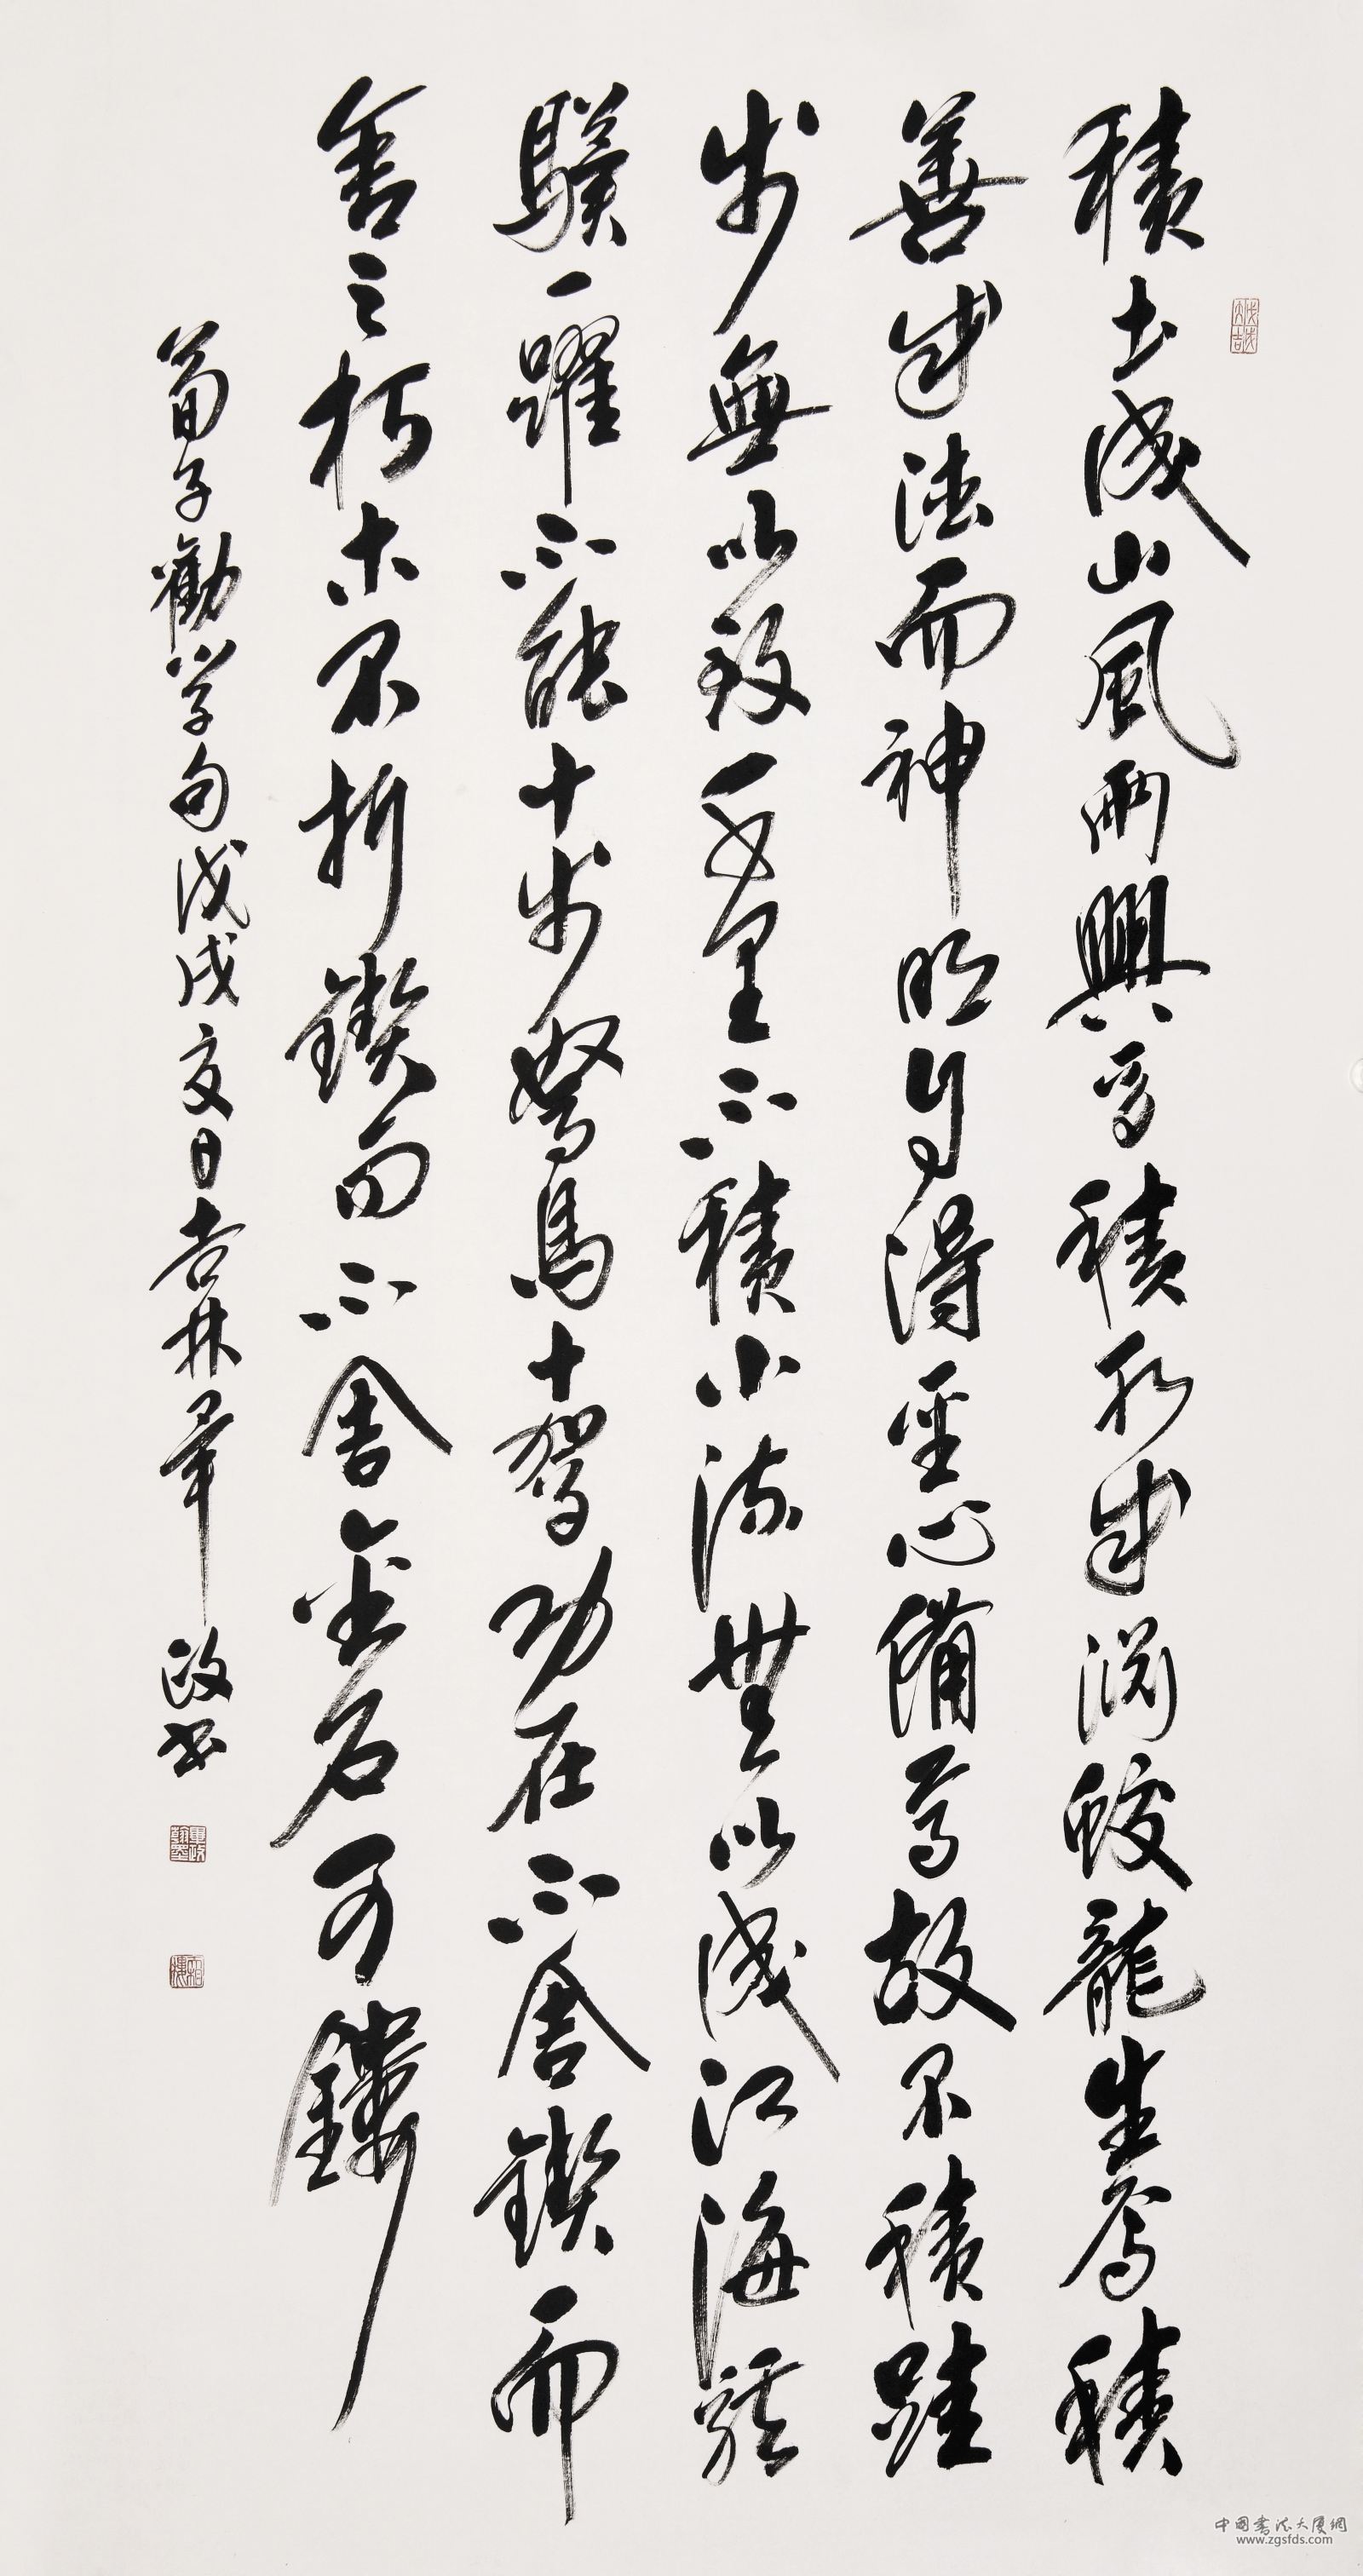 積土成山風雨興焉積水成渊蛟龍生焉積
善成德而神明自得聖心備焉故不積跬
步無以致千里不積小流無以成江海騏
驥一躍不能十步駑馬十駕功在不舍鍥而
舍之朽木不折鍥而不舍金石可鏤
荀子勸學句戊戌夏日吉林軍政書
戊戌大吉
軍政翰墨
中国書法大厦網
www.zgsfds.com